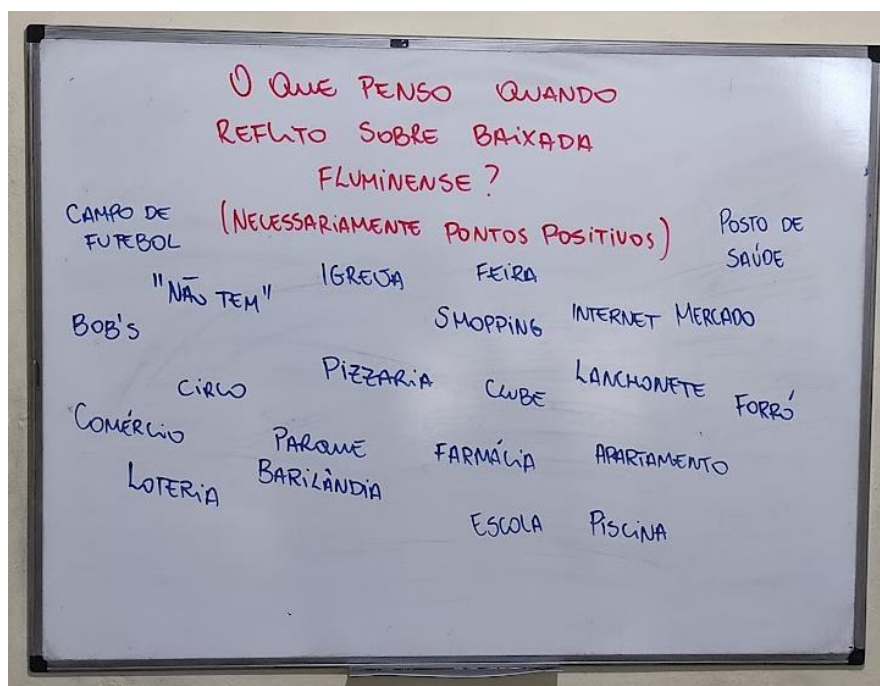 O QUE PENSO QUANDO
REFLITO SOBRE BAIXADA
FLUMINENSE?
(NECESSARIAMENTE PONTOS POSITIVOS)
CAMPO DE
FUTEBOL
POSTO DE
SAÚDE
"NÃO TEM"
IGREJA
FEIRA
BOB'S
SHOPPING
INTERNET
MERCADO
CIRCO
PIZZARIA
CLUBE
LANCHONETE
FORRÓ
COMÉRCIO
LOTERIA
PARQUE
BARILÂNDIA
FARMÁCIA
APARTAMENTO
ESCOLA
PISCINA